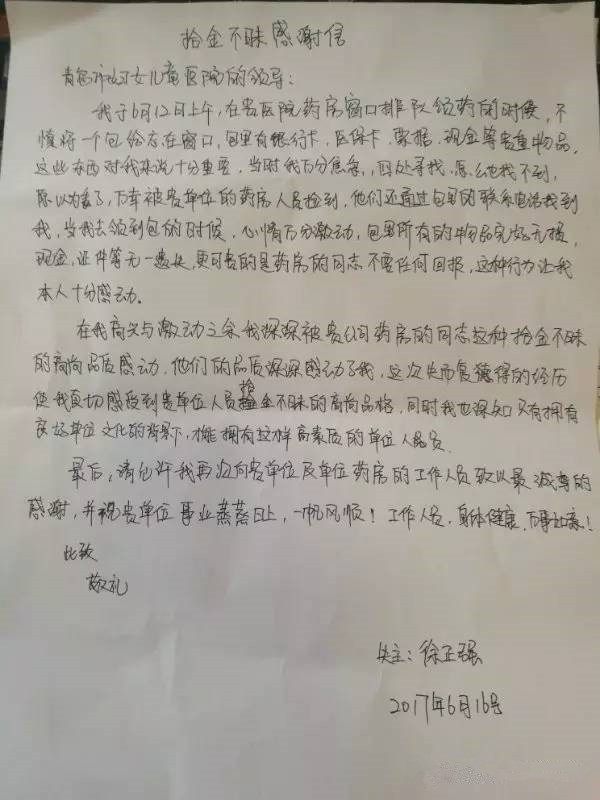 拾金不昧感谢信
青岛市妇女儿童医院的领导:
我于6月12日上午,在贵医院药房窗口排队领药的时候,不
慎将一个包给忘在窗口,包里有银行卡、医保卡、票据、现金等贵重物品,
这些东西对我来说十分重要,当时我万分焦急,四处寻找,怎么也找不到,
原以为丢了,万幸被贵单位的药房人员捡到,他们还通过包里的联系电话找到
我,当我去领到包的时候,心情万分激动,包里所有的物品完好无损,
现金,证件等无一遗失,更可贵的是药房的同志不要任何回报,这种行为让我
本人十分感动。
在我高兴与激动之余我深深被贵公司药房的同志这种拾金不昧
的高尚品质感动,他们的品质深深感动了我,这次失而复得的经历
使我真切感受到贵单位人员拾金不昧的高尚品格,同时我也深知只有拥有
良好单位文化的背景下,才能拥有这样高素质的单位人员.
最后,请允许我再次向贵单位及单位药房的工作人员致以最诚尊的
感谢,并祝贵单位事业蒸蒸日上,一帆风顺!工作人员,身体健康,万事如意!
此致
敬礼
失主:徐正强
2017年6月16号